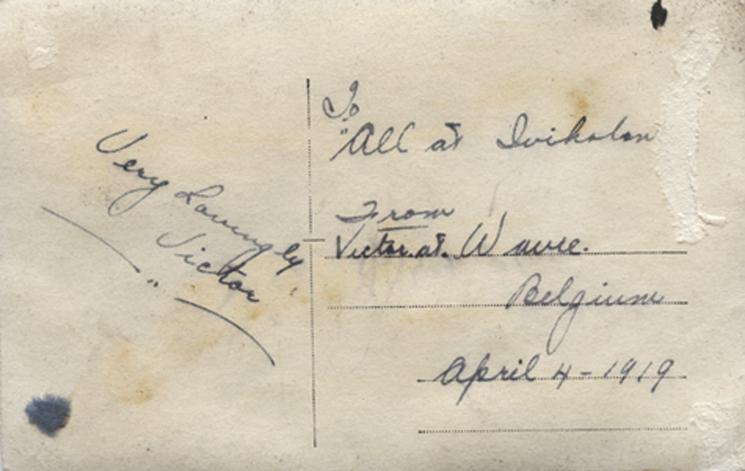 Very Lovingly
Victor
"
To
"All at
From
Victor. at. Wavre.
Belgium
April 4-1919